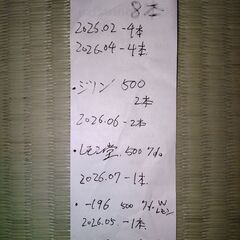 8本
2025.02-4本
2026.04-4本
・ジリン 500
2本
2026.06-2本
・レモン堂 500 7%
2026.07-1本
・-196 500 7% W
レモン
2026.05-1本